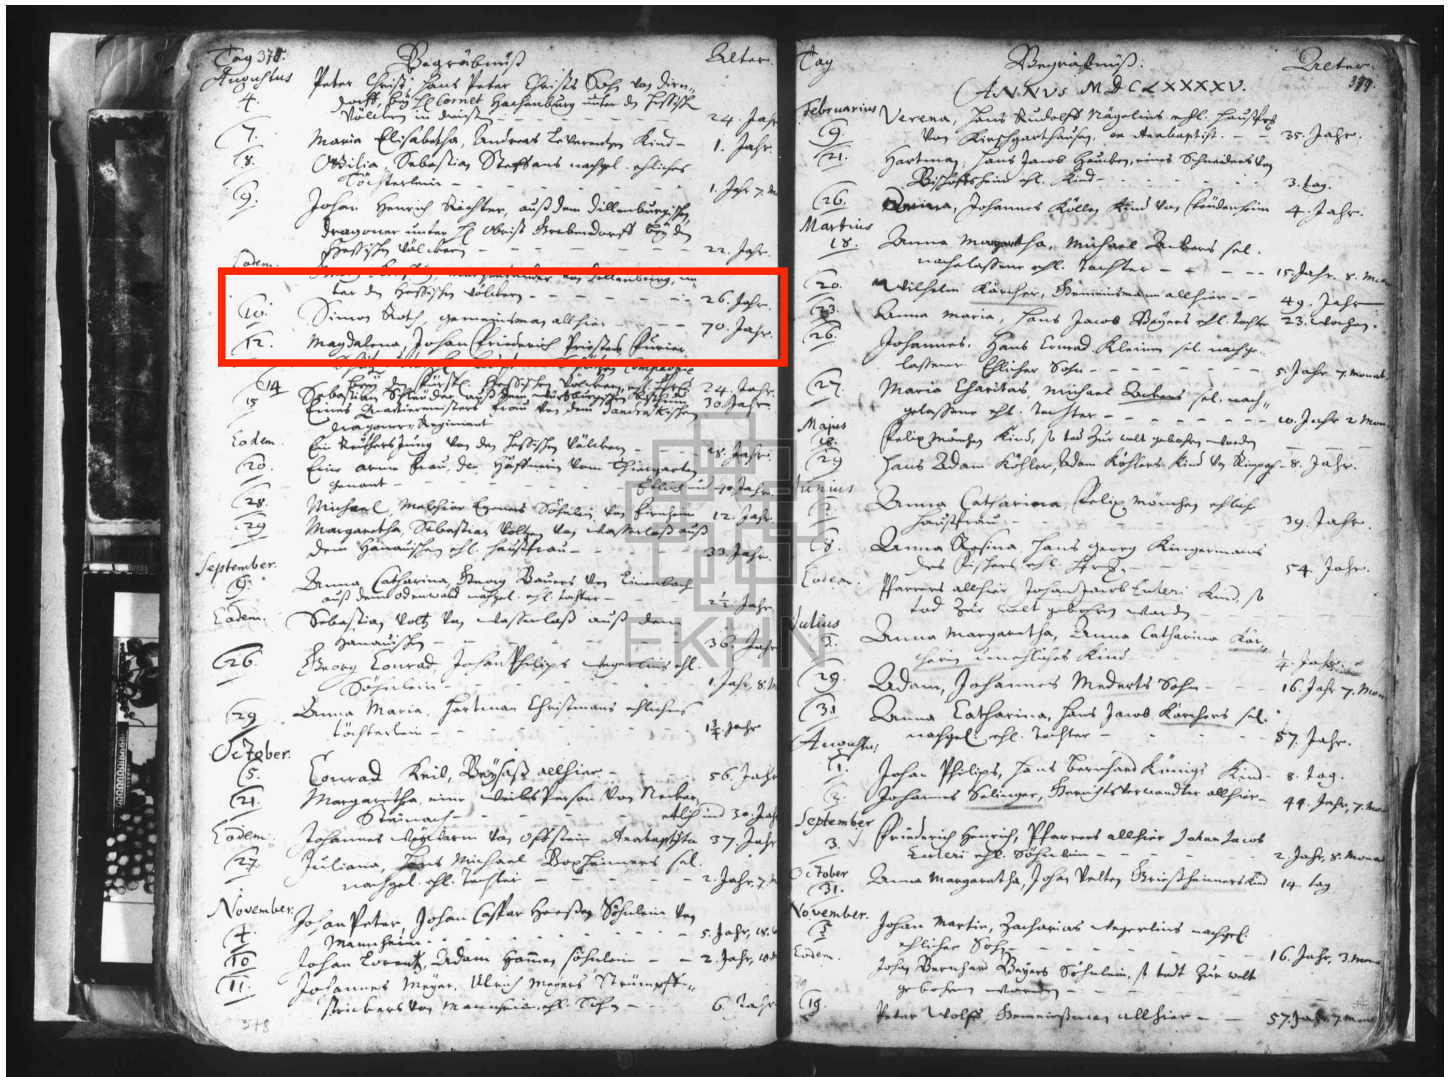 Tag 378. Begräbnuß Alter.
Augustus Peter Christ, Hans Peter Christs Sohn von
4. Cornet Hachenburg unter den Hessischen
Völckern in 24. Jahr
7. Maria Elisabetha, Andreas Kind 1. Jahr.
8. Ottilia Sebastian Steffans nachgel. ehliches
Töchterlein 1. Jahr 7. M
9. Johan Henrich Richter, auß dem Dillenburgischen
Dragoner unter H. Obrist bey den
Hessischen Völckern 22. Jahr.
Eodem. von Dillenburg, un
ter den Hessischen Völckern 26. Jahr.
10. Simon Roth, gemeinsman allhier 70. Jahr.
12. Magdalena, Johan Friederich Priesters Furier
Compagnie
bey den Fürstl. Hessischen Völckern, ehl. 24. Jahr.
14 Sebastian auß dem Würtzburgischen 30. Jahr
15 Eines Quartiermeisters Frau von dem
Dragoner Regiment
Eodem. Ein Reuthers Jung von den Hessischen Völckern 18. Jahr.
20. Eine arme Frau, die vom Thiergarten
genant Etlich und 40 Jahr.
28. Michael, Melchior Söhnlein von 12. Jahr
29 Margaretha, Sebastian Voltz von Wasserloß auß
dem Hanauischen ehl. Haußfrau 33 Jahr.
September.
9. Anna Catharina, Georg Bauers von
auß dem Odenwald nachgel. ehl. tochter 2½ Jahr.
Eodem. Sebastian Voltz von Wasserloß auß dem
Hanauischen 36. Jahr
26. Georg Conrad Johan Philips ehl.
Söhnlein 1. Jahr, 8. M
29 Anna Maria, Hartman Christmans ehliches
töchterlein 1¾ Jahr
October.
5. Conrad Keil, Beysaß allhier 56. Jahr
21. Margaretha, eine Weibs Person von Neckar
Steinach etlich und 30. Jahr
Eodem. Johannes von Offstein Anabaptista 37. Jahr
27. Juliana, Hans Michael sel.
nachgel. ehl. Tochter 2. Jahr, 7. M
November. Johan Peter, Johan Caspar Söhnlein von
4. Mannheim 5. Jahr, 18.
10 Johan Lorentz, Adam söhnlein 2. Jahr, 10
11. Johannes Meyer, Ulrich Meyers Strümpff
strickers von Mannheim ehl. Sohn 6. Jahr
378
Tag Begräbnuß. Alter.
379.
ANNUS MDCLXXXXV.
Februarius Verena, Hans Rudolff Nägelins ehl. Haußfr.
9. von Kirschgarthausen, Anabaptist. 35. Jahr.
21. Hartman, Hans Jacob eines Schneiders von
Bischoffsheim ehl. Kind 3. tag.
26. Johannes Köllen Kind von Feudenheim 4. Jahr.
Martius
18. Anna Margretha, Michael Ackers sel.
nachelassene ehl. tochter 15. Jahr. 8. Mon
20. Wilhelm Kärcher, Gemeinsmann allhier 49. Jahr
23. Anna Maria, Hans Jacob Beyers ehl. tochter 23. Wochen.
26. Johannes, Hans Conrad Kleinen sel. nachge-
lassener Ehlicher Sohn 5. Jahr 7. monat
27. Maria Charitas, Michael Ackers sel. nach-
gelassene ehl. tochter 10. Jahr 2 Mon.
Majus
18. Felix Mönchen Kind, so tod zur welt gebohren worden
29 Hans Adam Köhler, Adam Köhlers Kind von 8. Jahr.
Junius
Anna Catharina, Felix Mönchen ehliche
haußfrau 39. Jahr.
8. Anna Rosina, Hans Georg Kingermans
des Fischers ehl. 54. Jahr.
Eodem. Pfarrers allhier Johan Jacob Luteri Kind, so
tod zur welt gebohren worden
Julius
Anna Margaretha, Anna Catharina Kär-
cherin unehliches Kind ¼. Jahr.
29. Adam, Johannes Mederts Sohn 16. Jahr 7. Mon
31 Anna Catharina, Hans Jacob Kärchers sel.
nachgel. ehl. Tochter 57. Jahr.
Augustus
1. Johan Philips, Hans Bernhard Königs Kind 8. tag.
2. Johannes Selinger, Gerichtsverwandter allhier 44. Jahr, 7. Mon
September
3. Friederich Henrich, Pfarrers allhier Johan Jacob
Luteri ehl. Söhnlein 2. Jahr, 8. Mona
October
31. Anna Margaretha, Johan Velten Kind 14. tag
November.
Johan Martin, Zacharias nachgel.
ehlicher Sohn 16. Jahr, 3. Mona
Eodem. Johan Bernhard Beyers Söhnlein, so todt zur welt
gebohren worden
19. Peter Wolff, Gemeinsman allhier 57. Jahr. 7. Mon
EKHN